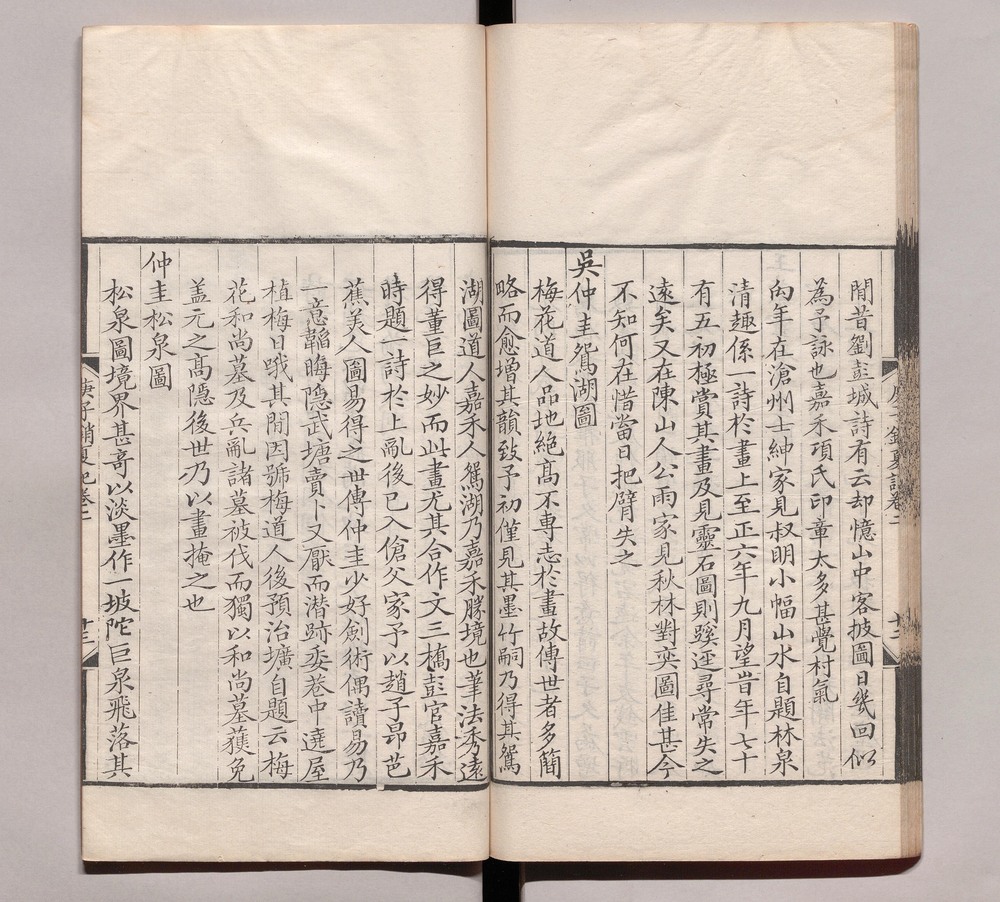 閒昔劉彭城詩有云却憶山中客披圖日幾回似
為予詠也嘉禾項氏印章太多甚覺村氣
丙年在滄州士紳家見叔明小幅山水自題林泉
清趣係一詩於畫上至正六年九月望昔年七十
有五初極賞其畫及見靈石圖則蹊逕尋常失之
遠矣又在陳山人公雨家見秋林對奕圖佳甚今
不知何在惜當日把臂失之
吳仲圭鴛湖圖
梅花道人品地絕高不專志於畫故傳世者多簡
略而愈增其韻致予初僅見其墨竹嗣乃得其鴛
湖圖道人嘉禾人鴛湖乃嘉禾勝境也筆法秀遠
得董巨之妙而此畫尤其合作文三橋彭官嘉禾
時題一詩於上亂後已入傖父家予以趙子昂芭
蕉美人圖易得之世傳仲圭少好劍術偶讀易乃
一意韜晦隱武塘賣卜又厭而潜跡委巷中遶屋
植梅日哦其閒因號梅道人後預治壙自題云梅
花和尚墓乃兵亂諸墓被伐而獨以和尚墓獲免
盖元之高隱後世乃以畫掩之也
仲圭松泉圖
松泉圖境界甚奇以淡墨作一坡陀巨泉飛落其
庚子銷夏記卷二
十三